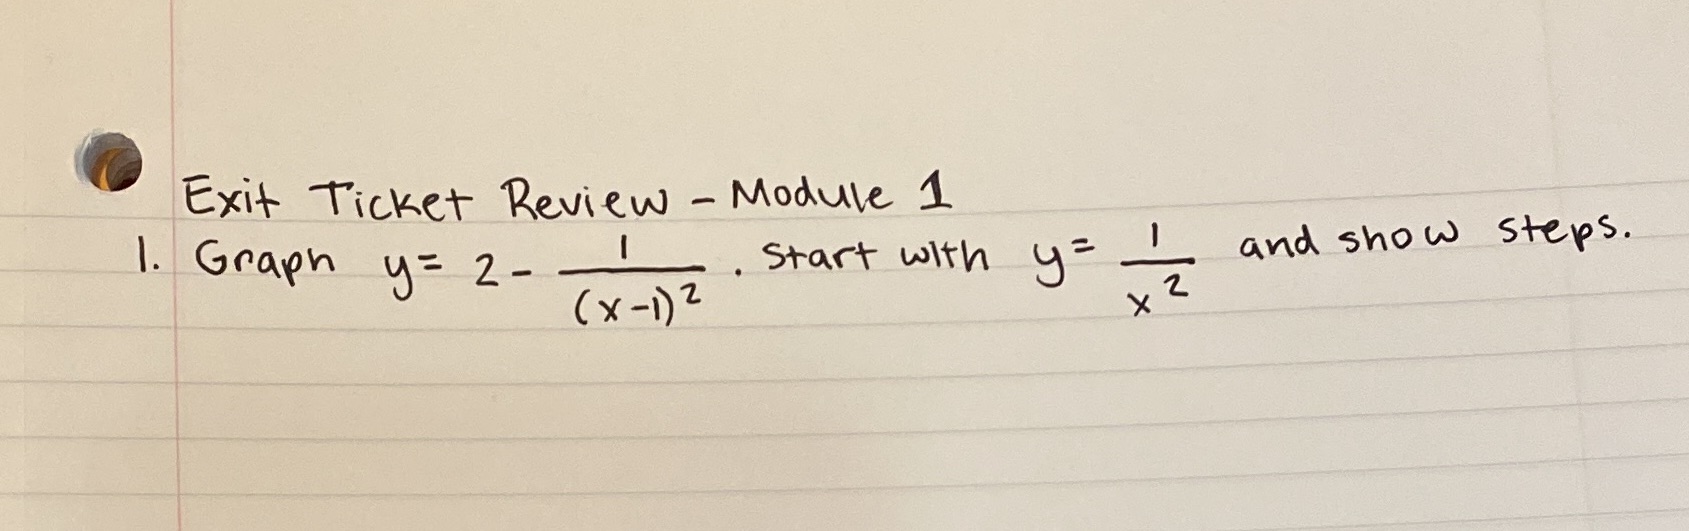 Exit Ticket Review - Module 1
1. Graph y = 2 - 1/(x-1)². Start with y = 1/x² and show steps.